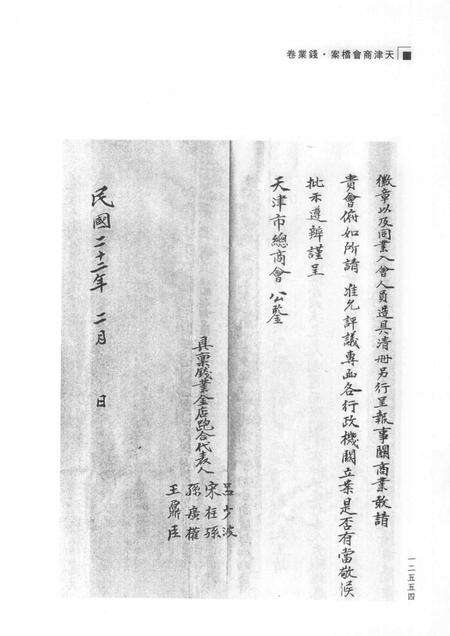 天津商會檔案·錢業卷
徽章以及同業入會人員造具清冊另行呈報事關商業敢請
貴會俯如所請准允評議專函各行政機關立業是否有當敬候
批示遵辦謹呈
天津市總商會公鑒
具稟錢業金店跑合代表人
呂少波
宋柱孫
孫廣權
王鼎臣
民國二十二年二月 日
一二五五四